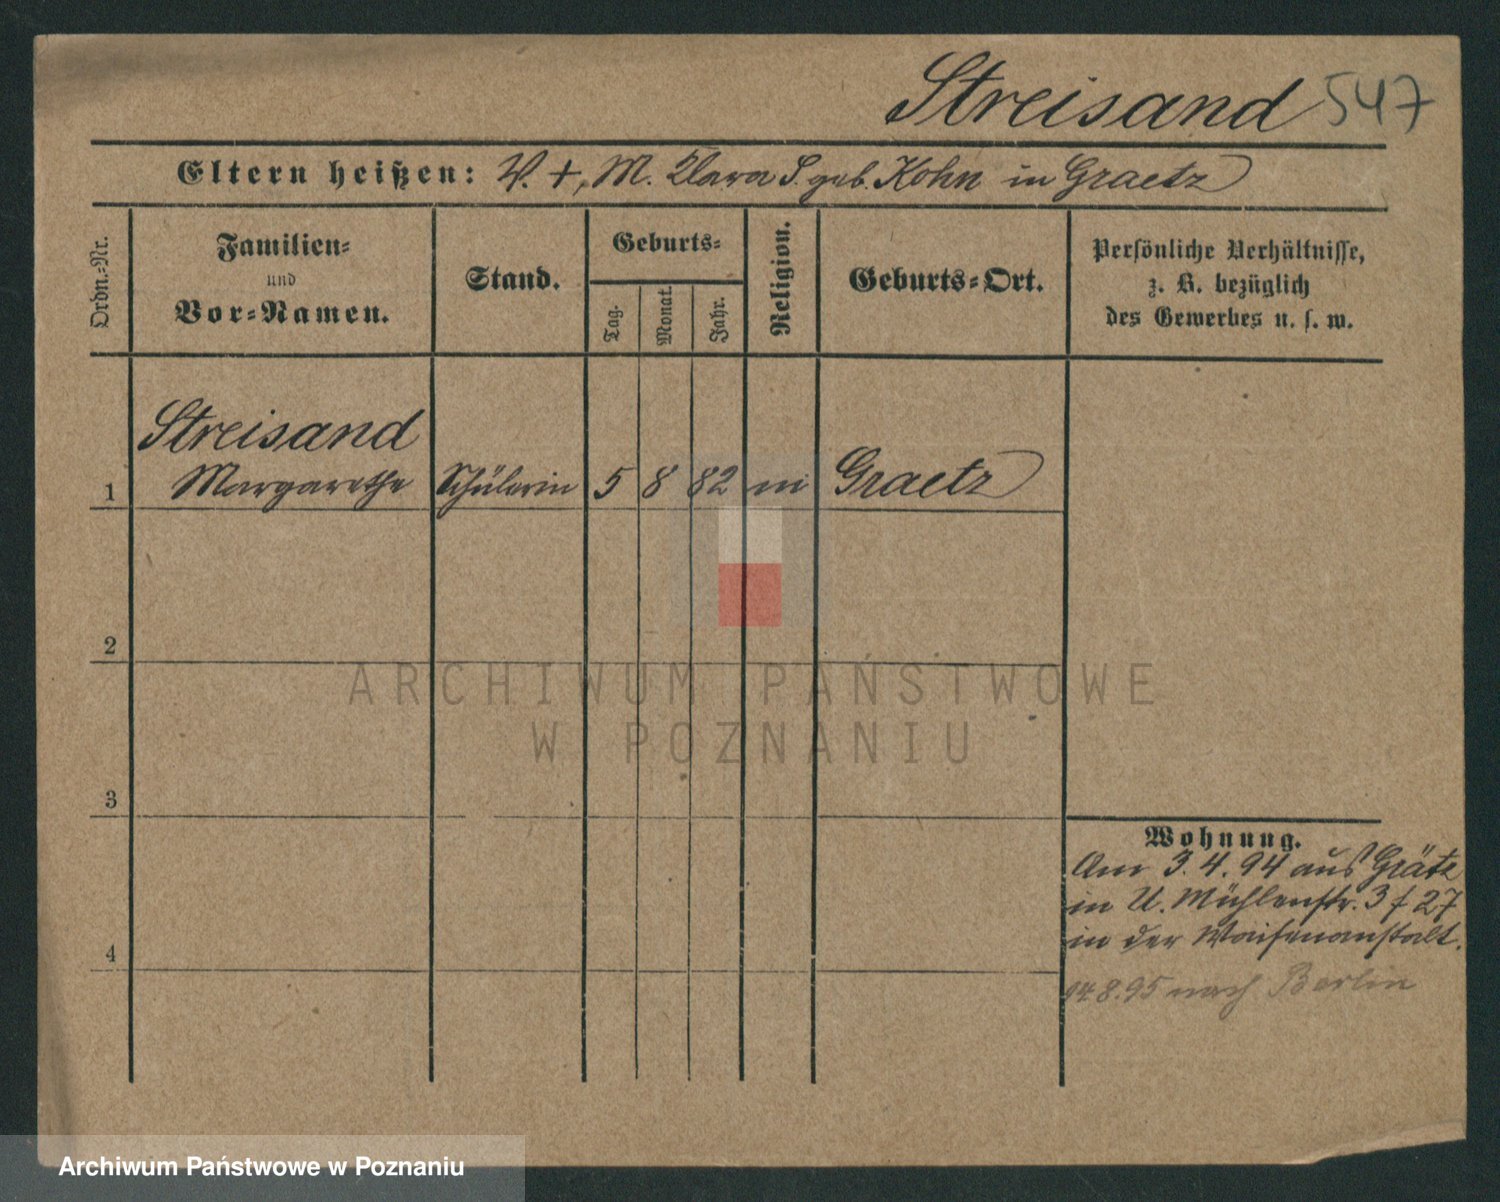 Streisand 547
Eltern heißen: V. +, M. Clara S. geb. Kohn in Graetz
Ordn.-Nr.
Familien-
und
Vor-Namen.
Stand.
Geburts-
Tag.
Monat.
Jahr.
Religion.
Geburts-Ort.
Persönliche Verhältnisse,
z. B. bezüglich
des Gewerbes u. s. w.
Streisand
1 Margarethe Schülerin 5 8 82 m Graetz
2
3
4
ARCHIWUM PAŃSTWOWE
W POZNANIU
Wohnung.
Am 3.4.94 aus Grätz
in U. Mühlenstr. 3 f 27
in der Waisenanstalt.
8.95 nach Berlin
Archiwum Państwowe w Poznaniu